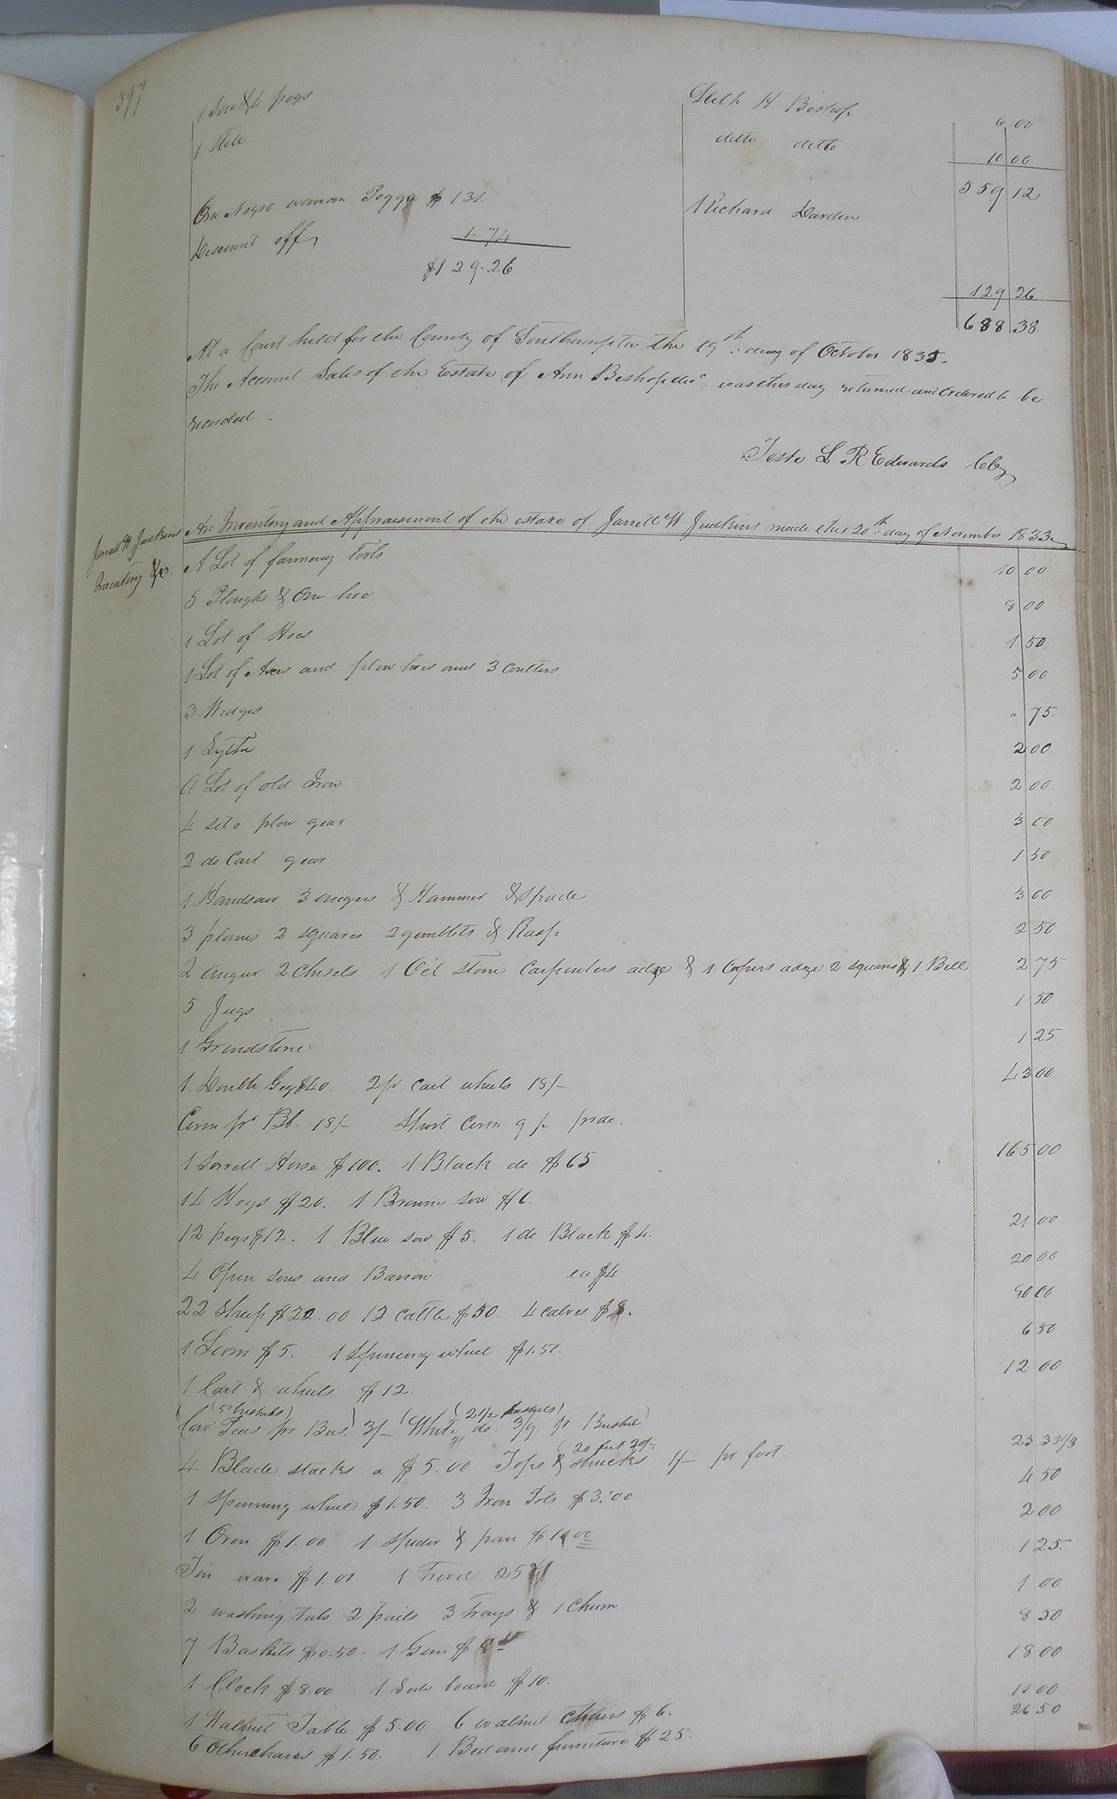 397
1 Sow & 4 pegs Seth H Beshop 6 00
1 Stele ditto ditto 10 00
559 12
One Negro woman Peggy $131. Richard Darden
Discount off 1.74
$129.26 129 26
688 38
At a Court held for the County of Southampton the 19th day of October 1835.
The Account Sales of the Estate of Ann Beshop decd. was this day returned and ordered to be
recorded.
Teste L R Edwards Clk
Jarrell W Judkins
Inventory &c.
An Inventory and Appraisement of the estate of Jarrell W Judkins made this 20th day of November 1833
A Lot of farming tools 10 00
5 Ploughs & One hoe 8 00
1 Lot of Hoes 1 50
1 Lot of Axes and plow hoes and 3 coulters 5 00
3 Wedges " 75
1 Sythe 2 00
A Lot of old Iron 2 00
4 sets plow gear 3 00
2 do Cart gear 1 50
1 Handsaw 3 augers & Hammer & spade 3 00
3 planes 2 squares 2 gimblets & Rasp 2 50
2 auger 2 chisels 1 Oil stone carpenters adze & 1 Coopers adze 2 squares & 1 Bell 2 75
5 Jugs 1 50
1 Grindstone 1 25
1 Double Gig $40. 2 pr. cart wheels 18/- 43 00
Corn pr Bl. 18/- Short Corn 9/-
1 Sorrell Horse $100. 1 Black do $65 165 00
14 Hogs $20. 1 Brown sow $6.
12 pegs $12. 1 Blue sow $5. 1 do Black $4. 21 00
4 Open sows and Barrow ea $4 20 00
22 Sheep $22.00 12 cattle $50. 4 calves $8. 80 00
1 Loom $5. 1 Spinning wheel $1.50. 6 50
1 Cart & wheels $12. 12 00
(5 bushels) (2 1/2 bushels)
Cow Peas pr Bus. 3/- White do. 3/9. pr Bushel
4 Blade stacks a $5.00 Tops & shucks 1/- pr foot. (20 feet 20/- 23 33 1/3
1 Spinning wheel $1.50. 3 Iron Pots $3.00 4 50
1 Oven $1.00 1 spider & pan $1.00 2 00
Tin ware $1.00 1 25 1 25
2 washing tubs 2 pails 3 trays & 1 Churn 1 00
7 Baskets $0.50. 1 $8 8 50
1 Clock $8.00 1 Side board $10. 18 00
1 Walnut Table $5.00 6 walnut chairs $6. 11 00
6 Other chares $1.50. 1 Bed and furniture $25. 26 50